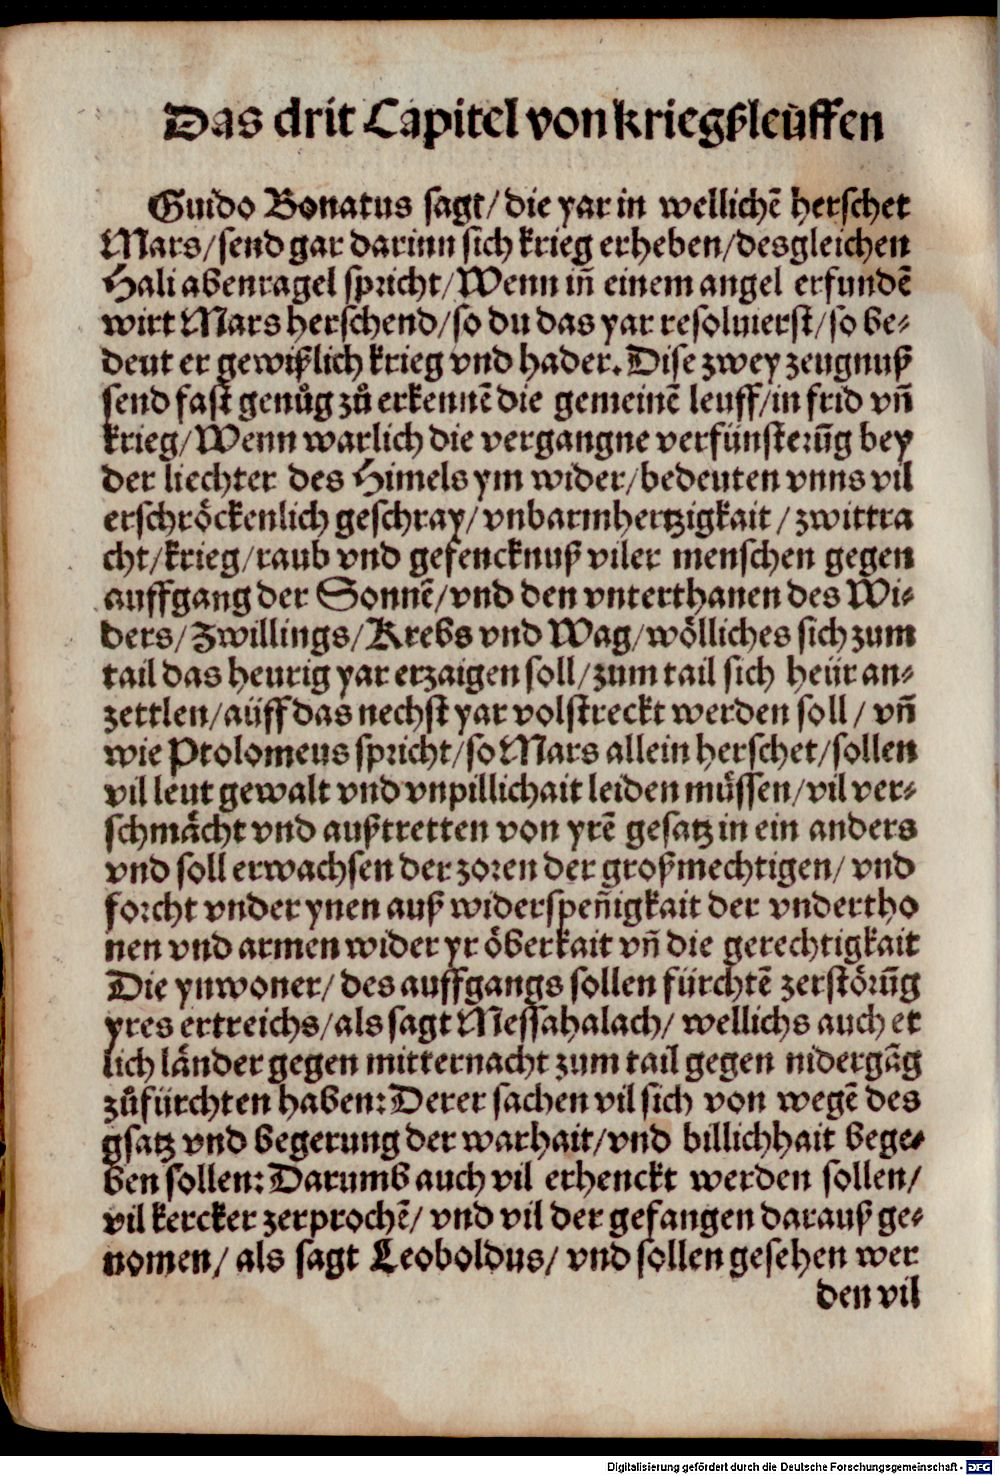 Das drit Capitel von kriegßleüffen
Guido Bonatus sagt/ die yar in wellichē herschet
Mars/ send gar darinn sich krieg erheben/ desgleichen
Hali abenragel spricht/ Wenn iñ einem angel erfundē
wirt Mars herschend/ so du das yar resoluierst/ so be⸗
deut er gewißlich krieg vnd hader. Dise zwey zeugnuß
send fast genůg zů erkennē die gemeinē leuff/ in frid vñ
krieg/ Wenn warlich die vergangne verfünsterūg bey
der liechter des Himels ym wider/ bedeuten vnns vil
erschröckenlich geschray/ vnbarmhertzigkait/ zwittra
cht/ krieg/ raub vnd gefencknuß viler menschen gegen
auffgang der Sonnē/ vnd den vnterthanen des Wi⸗
ders/ Zwillings/ Krebs vnd Wag/ wölliches sich zum
tail das heurig yar erzaigen soll/ zum tail sich heür an⸗
zettlen/ aüff das nechst yar volstreckt werden soll/ vñ
wie Ptolomeus spricht/ so Mars allein herschet/ sollen
vil leut gewalt vnd vnpillichait leiden müssen/ vil ver⸗
schmächt vnd außtretten von yrē gesatz in ein anders
vnd soll erwachsen der zoren der großmechtigen/ vnd
forcht vnder ynen auß widerspeñigkait der vndertho
nen vnd armen wider yr öberkait vñ die gerechtigkait
Die ynwoner/ des auffgangs sollen fürchtē zerstörūg
yres ertreichs/ als sagt Messahalach/ wellichs auch et
lich länder gegen mitternacht zum tail gegen nidergāg
zůfürchten haben: Derer sachen vil sich von wegē des
gsatz vnd begerung der warhait/ vnd billichhait bege⸗
ben sollen: Darumb auch vil erhenckt werden sollen/
vil kercker zerprochē/ vnd vil der gefangen darauß ge⸗
nomen/ als sagt Leoboldus/ vnd sollen gesehen wer
den vil
Digitalisierung gefördert durch die Deutsche Forschungsgemeinschaft - DFG